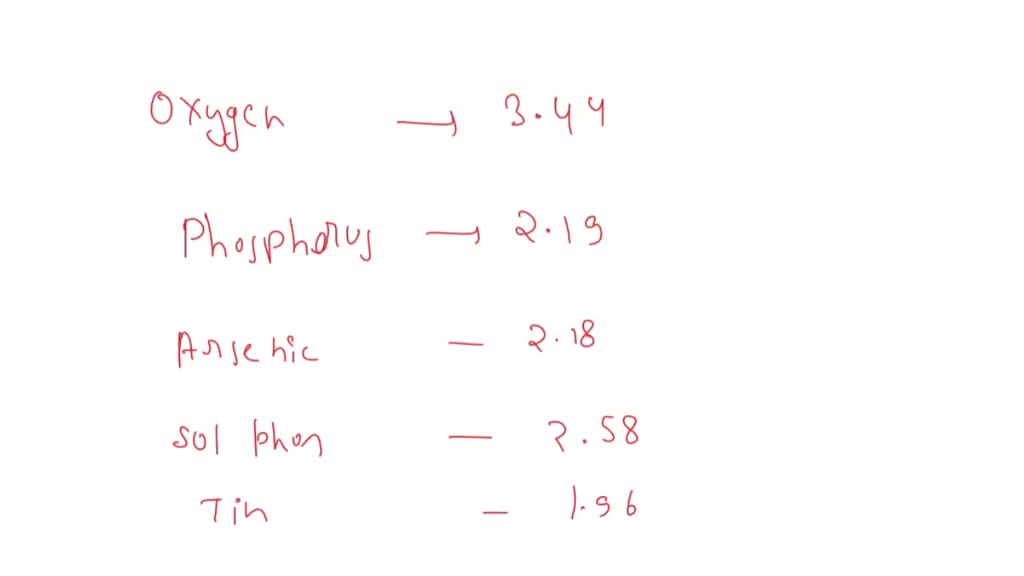 Oxygen → 3.44
Phosphorus → 2.19
Arsenic — 2.18
Sol phon — 2.58
Tin — 1.96